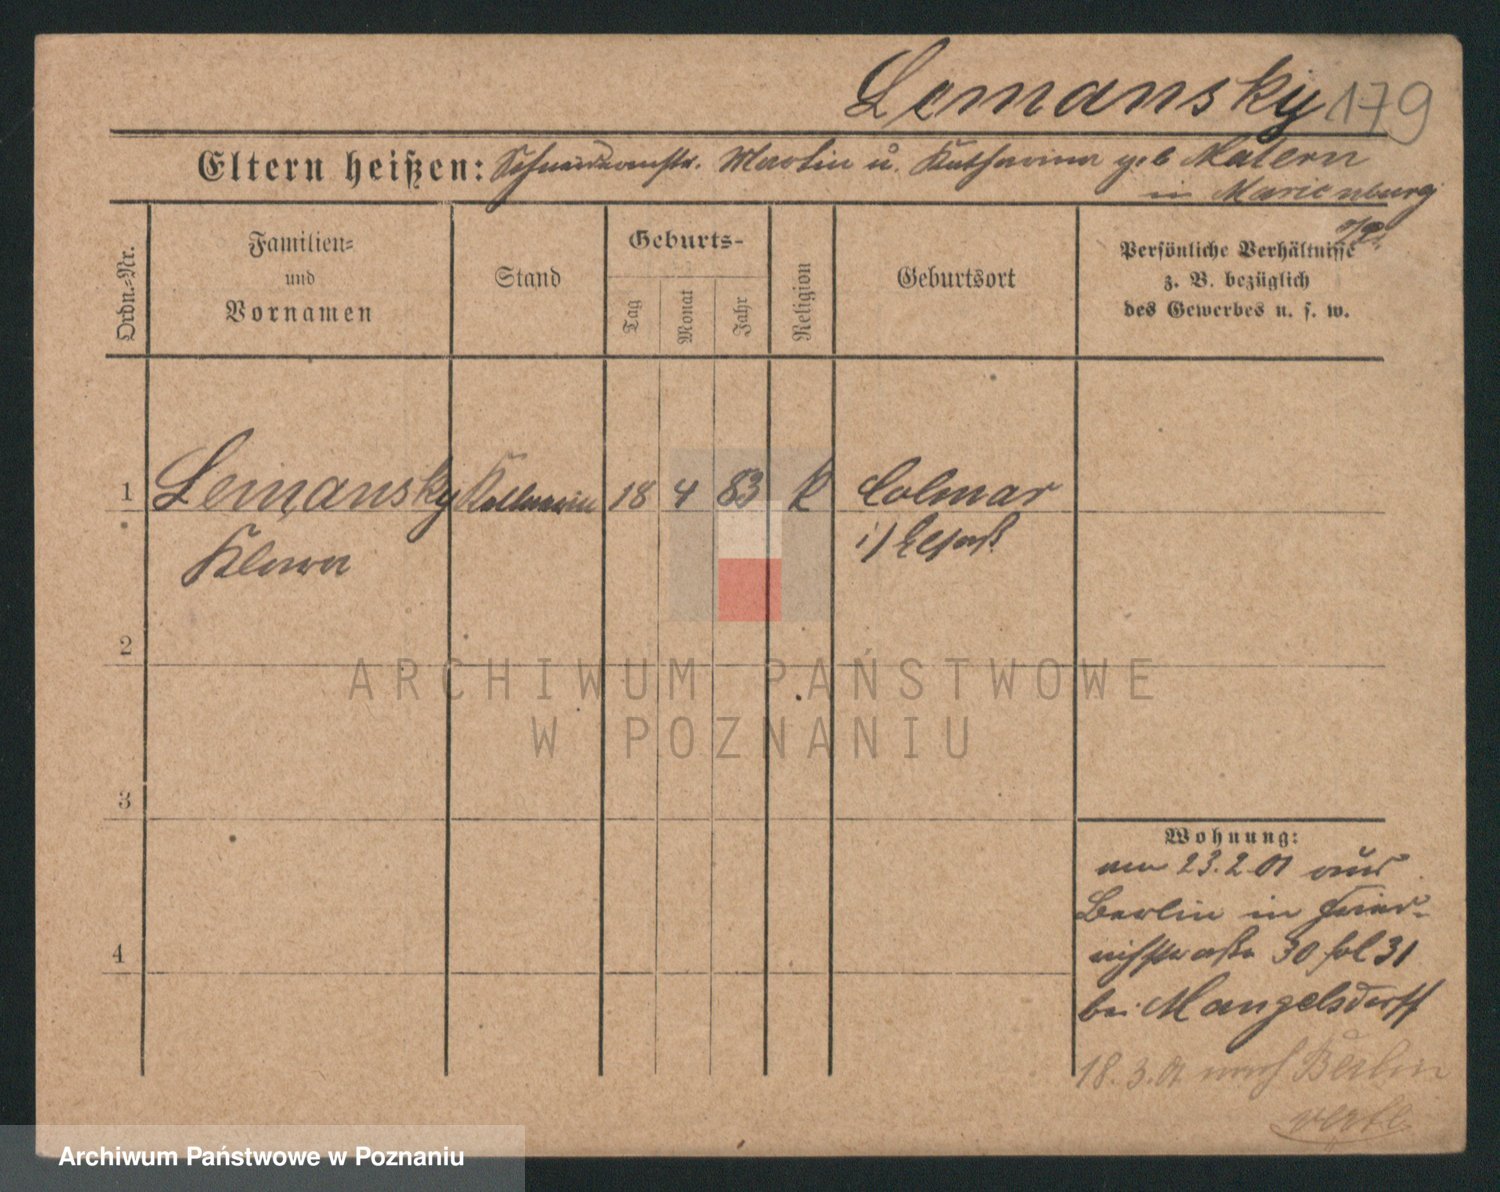 Lemansky 179
Eltern heißen: Schneidermstr. Martin u. Katharina geb Matern
in Marienburg
Ordn.=Nr.
Familien=
und
Vornamen
Stand
Geburts-
Tag
Monat
Jahr
Religion
Geburtsort
Persönliche Verhältnisse
z. B. bezüglich
des Gewerbes u. s. w.
1 Lemansky Kellnerin 18 4 83 K Colmar
Klara i/ Elsaß
2
3
4
Wohnung:
am 23.2.01 aus
Berlin in Fried-
richstraße 30 31
bei Mangelsdorff
18.3.01 nach Berlin
ARCHIWUM PAŃSTWOWE
W POZNANIU
Archiwum Państwowe w Poznaniu